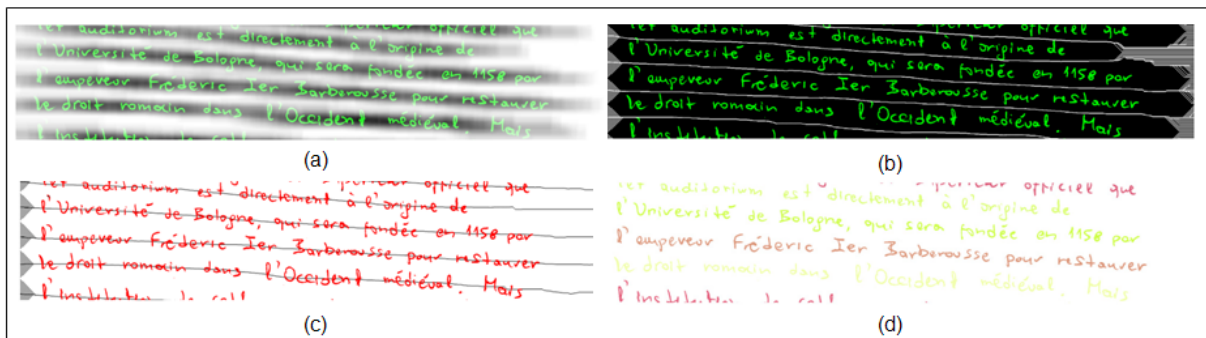 officiel que
auditorium est directement à l'origine de
l'Université de Bologne, qui sera fondée en 1158 par
l'empereur Fréderic Ier Barberousse pour restaurer
le droit romain dans l'Occident médiéval. Mais
(a)
officiel que
auditorium est directement à l'origine de
l'Université de Bologne, qui sera fondée en 1158 par
l'empereur Fréderic Ier Barberousse pour restaurer
le droit romain dans l'Occident médiéval. Mais
(b)
officiel que
auditorium est directement à l'origine de
l'Université de Bologne, qui sera fondée en 1158 par
l'empereur Fréderic Ier Barberousse pour restaurer
le droit romain dans l'Occident médiéval. Mais
(c)
officiel que
auditorium est directement à l'origine de
l'Université de Bologne, qui sera fondée en 1158 par
l'empereur Fréderic Ier Barberousse pour restaurer
le droit romain dans l'Occident médiéval. Mais
(d)